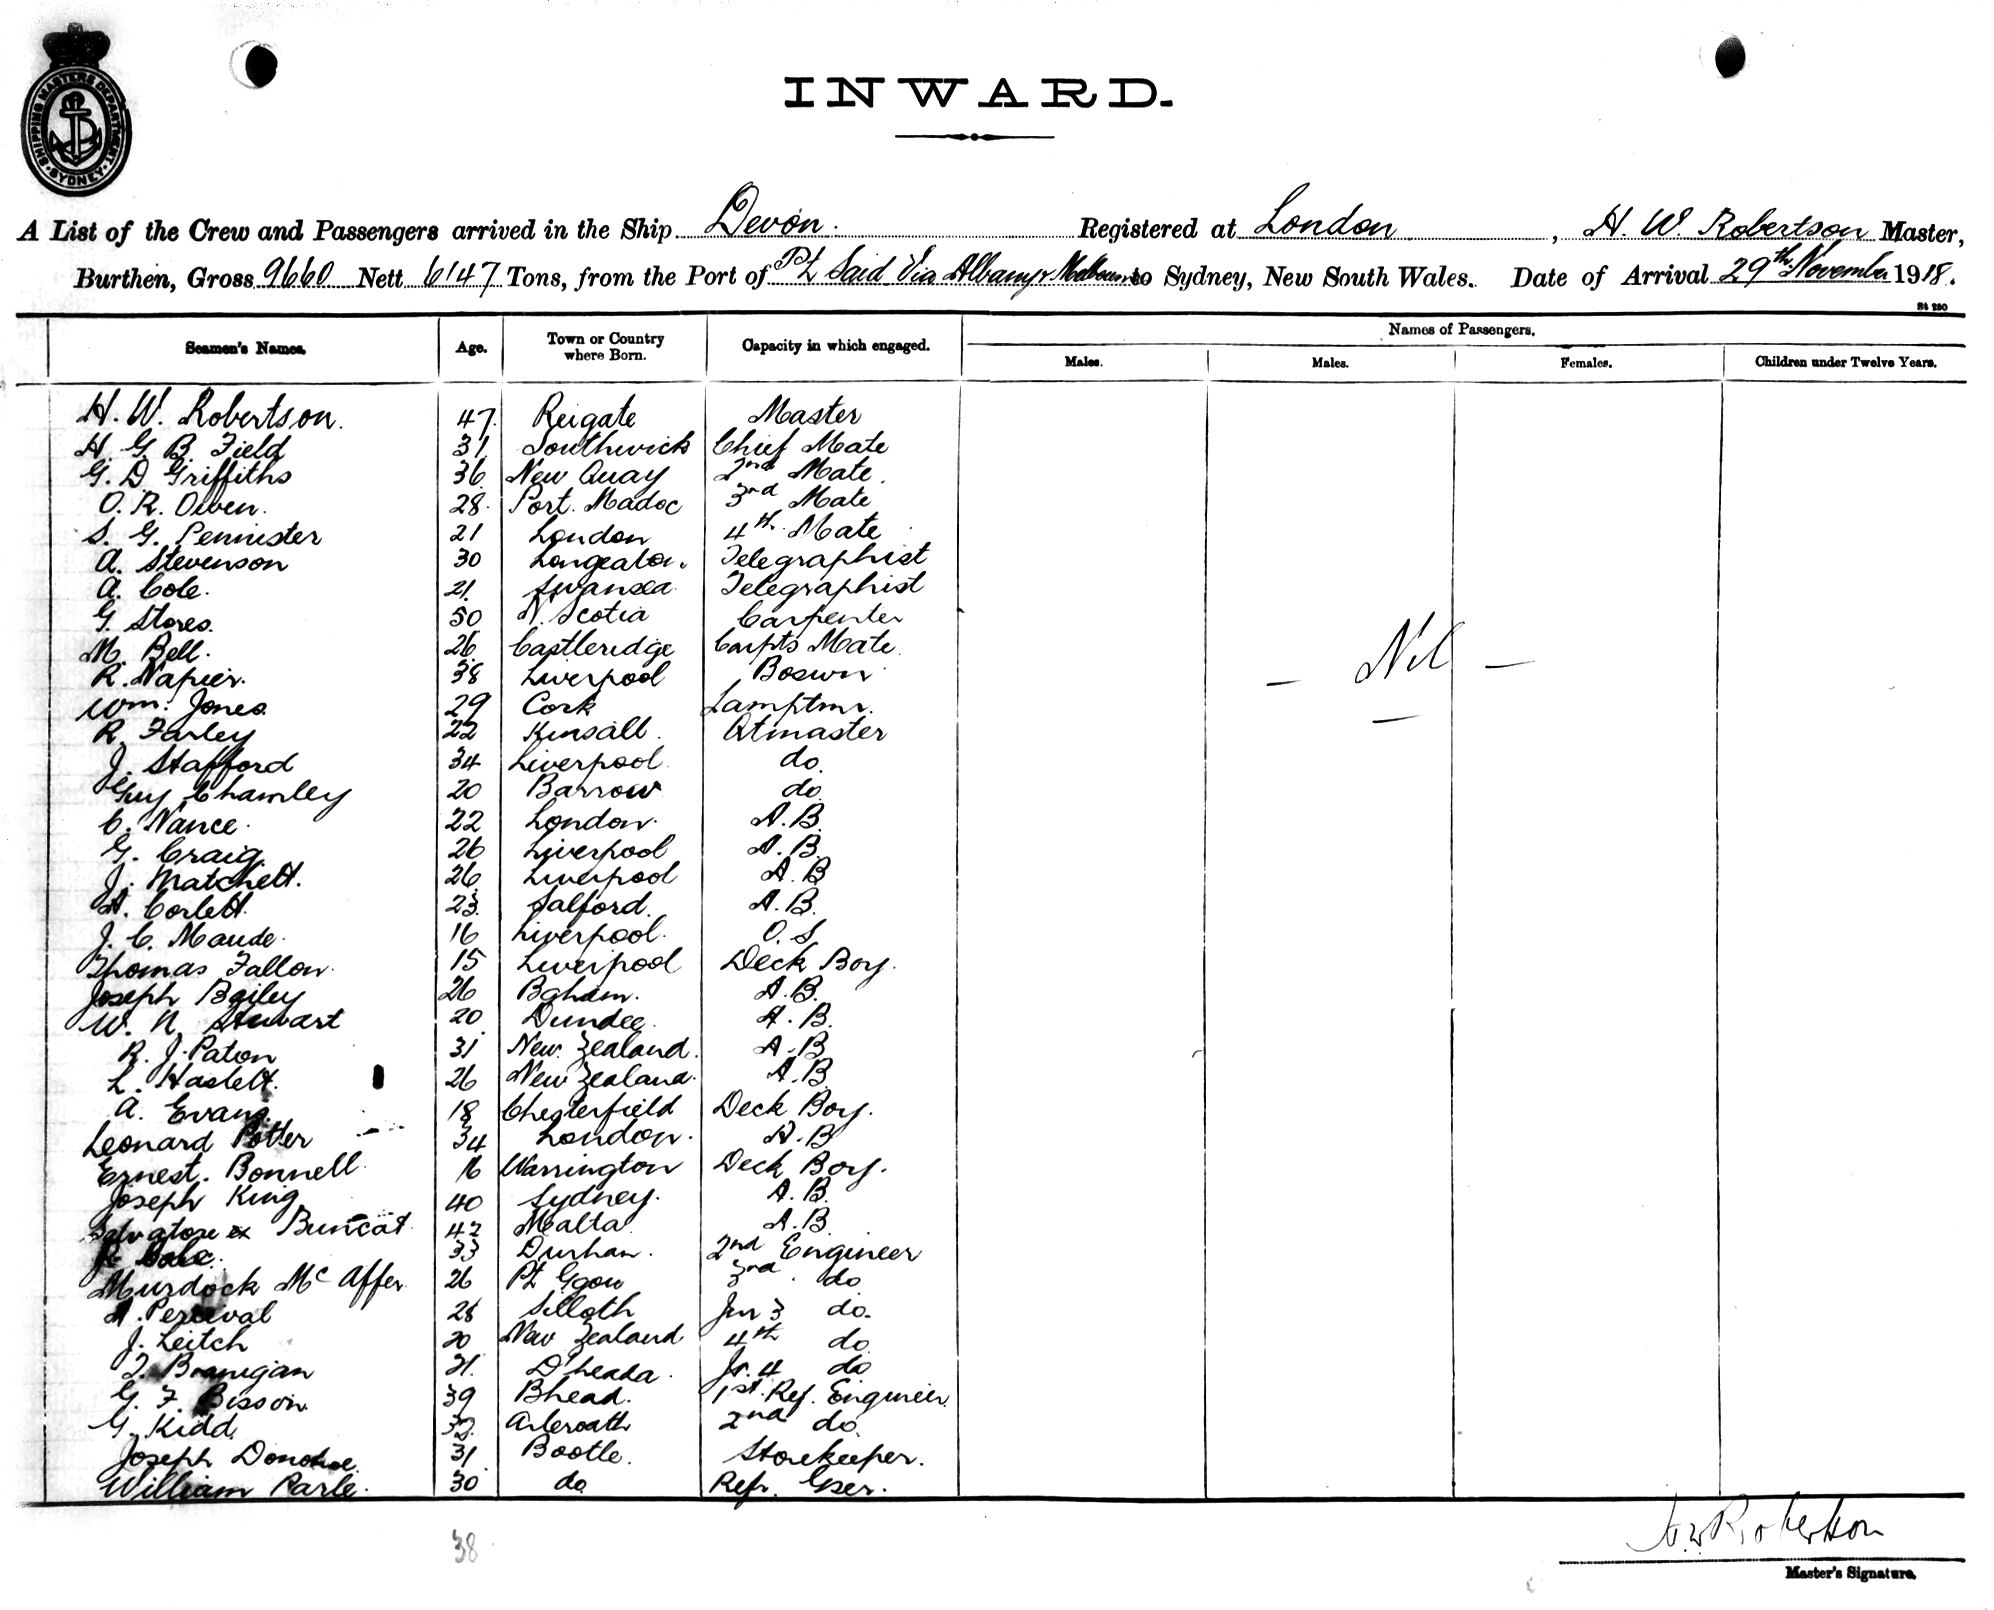 SHIPPING MASTERS DEPARTMENT SYDNEY
INWARD.
A List of the Crew and Passengers arrived in the Ship Devon. Registered at London, H. W. Robertson Master,
Burthen, Gross 9660 Nett 6147 Tons, from the Port of Pt Said Via Albany & Melbourne to Sydney, New South Wales. Date of Arrival 29th November 1918.
St 280
Seamen's Names. Age. Town or Country where Born. Capacity in which engaged. Names of Passengers.
Males. Males. Females. Children under Twelve Years.
H. W. Robertson. 47 Reigate Master
H. G. B. Field 31 Southwick Chief Mate
G. D. Griffiths 36 New Quay 2nd Mate.
O. R. Owen. 28 Port Madoc 3rd Mate
S. G. Pennister 21 London 4th Mate
A. Stevenson 30 Longeaton. Telegraphist
A. Cole. 21. Swansea Telegraphist
G. Stores. 50 N. Scotia Carpenter
M. Bell. 26 Castleridge Carpts Mate
R. Napier. 38 Liverpool Boswn
Wm. Jones 29 Cork Lamptmr.
R. Farley 22 Kinsall. Qtmaster
J. Stafford 34 Liverpool do.
Guy Chamley 20 Barrow do.
C. Nance. 22 London. A.B.
G. Craig. 26 Liverpool A.B.
J. Matchett. 26 Liverpool A.B
A. Corlett. 23 Salford. A.B.
J. C. Maude. 16 Liverpool. O.S.
Thomas Fallon. 15 Liverpool Deck Boy.
Joseph Bailey 26 Bgham. A.B.
W. N. Stewart 20 Dundee. A.B.
R. J. Paton 31 New Zealand. A.B
L. Haslett. 26 New Zealand. A.B.
A. Evans. 18 Chesterfield Deck Boy.
Leonard Potter 34 London. A.B
Ernest. Bonnell. 16 Warrington Deck Boy.
Joseph King 40 Sydney. A.B.
Salvatore Buncat 42 Malta A.B.
R. 33 Durham. 2nd Engineer
Murdock McAffer 26 Pt Ggow 3rd do
A. Perceval 28 Silloth Jnr 3 do.
J. Leitch 20 New Zealand 4th do
Branigan 21. D'heada. Jr. 4 do
G. F. Bisson 39 Bhead. 1st Ref. Engineer.
G. Kidd. Arbroath 2nd do.
Joseph Donohoe 31 Bootle. Storekeeper.
William Parle. 30 do Refr. Gser.
— Nil —
38
H W Robertson
Master's Signature.